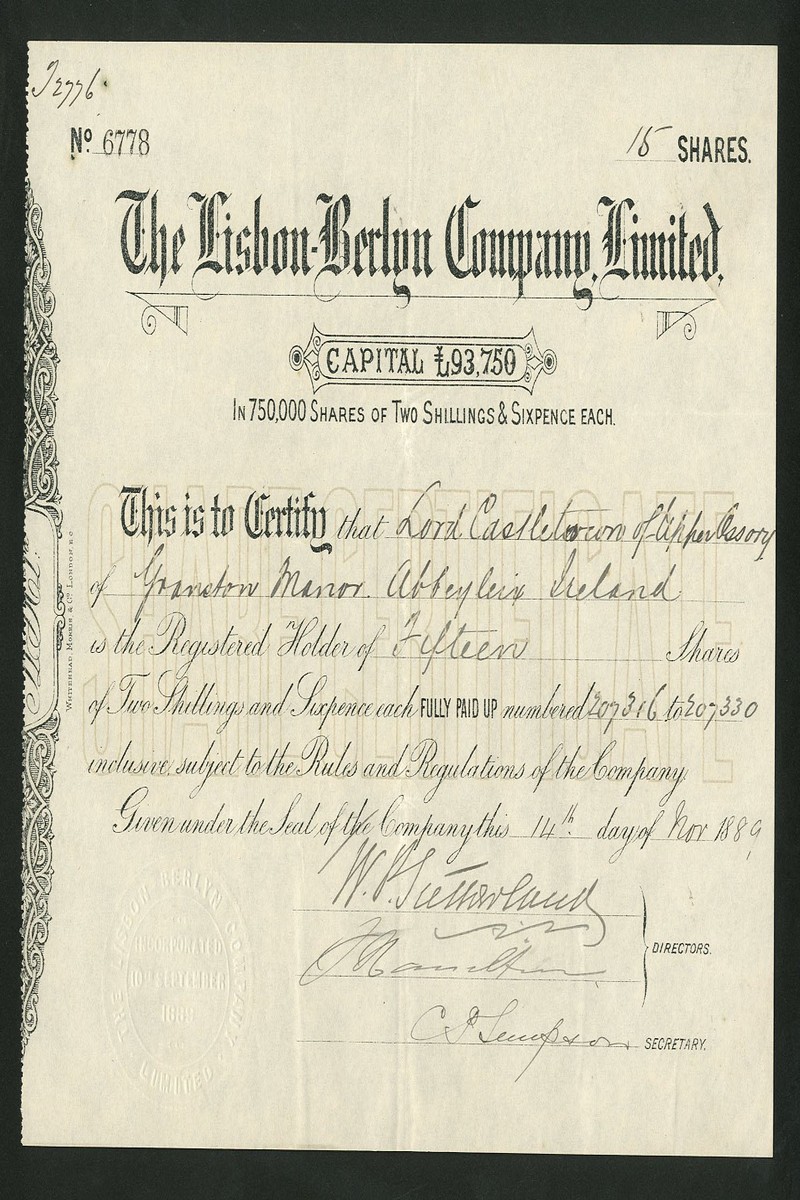 J2776
No. 6778
15 SHARES.
The Lisbon-Berlyn Company, Limited.
CAPITAL £93,750
IN 750,000 SHARES OF TWO SHILLINGS & SIXPENCE EACH.
SHARE CERTIFICATE
This is to Certify that Lord Castletown of Upper Ossory
of Granston Manor. Abbeyleix Ireland
is the Registered Holder of Fifteen Shares
of Two Shillings and Sixpence each FULLY PAID UP numbered 207316 to 207330
inclusive, subject to the Rules and Regulations of the Company.
Given under the Seal of the Company this 14th. day of Nov 1889
W. P. Sutherland
J Hamilton
DIRECTORS.
C F Simpson
SECRETARY.
THE LISBON BERLYN COMPANY
INCORPORATED
10TH SEPTEMBER
1889
LIMITED
WHITEHEAD, MORRIS, & CO. LONDON, E.C.